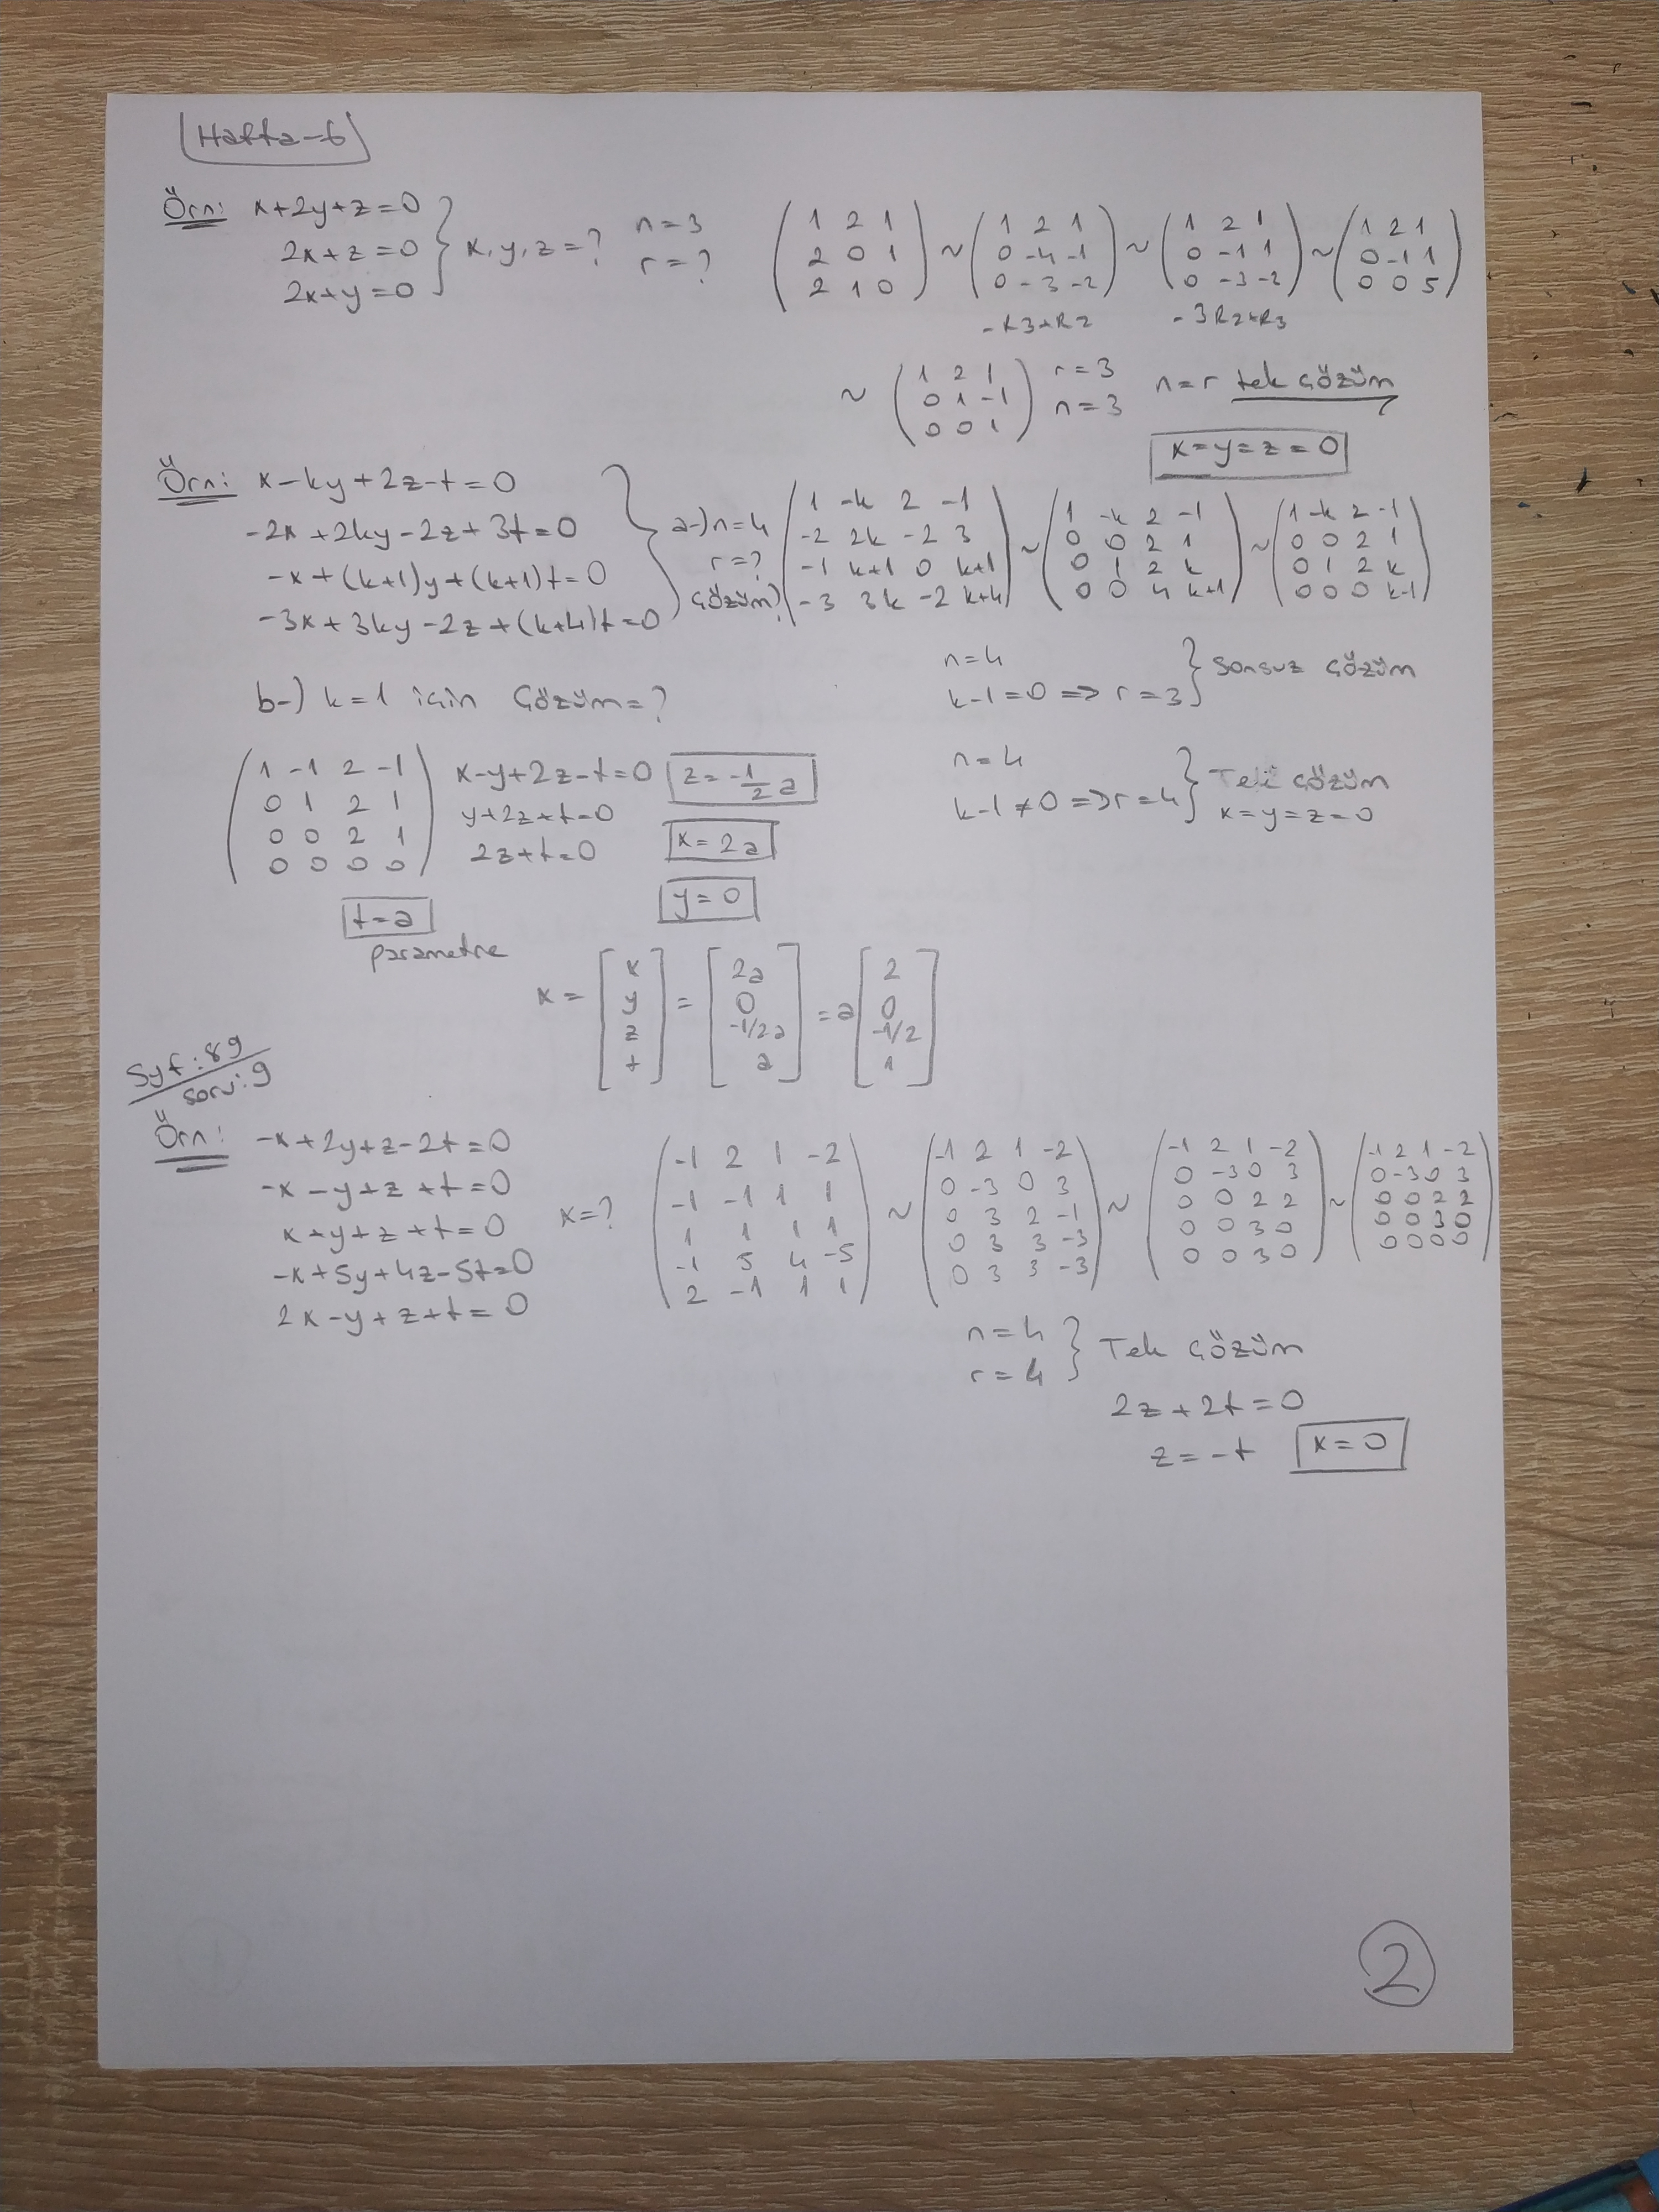 Hafta-6
Örn: x+2y+z=0
2x+z=0
2x+y=0
x,y,z=?
n=3
r=?
1 2 1
2 0 1
2 1 0
~
1 2 1
0 -4 -1
0 -3 -2
~
1 2 1
0 -1 1
0 -3 -2
~
1 2 1
0 -1 1
0 0 5
-R3+R2
-3R2+R3
~
1 2 1
0 1 -1
0 0 1
r=3
n=3
n=r tek çözüm
x=y=z=0
Örn: x-ky+2z-t=0
-2x+2ky-2z+3t=0
-x+(k+1)y+(k+1)t=0
-3x+3ky-2z+(k+4)t=0
a-) n=4
r=?
çözüm?
1 -k 2 -1
-2 2k -2 3
-1 k+1 0 k+1
-3 3k -2 k+4
~
1 -k 2 -1
0 0 2 1
0 1 2 k
0 0 4 k+1
~
1 -k 2 -1
0 0 2 1
0 1 2 k
0 0 0 k-1
b-) k=1 için çözüm=?
n=4
k-1=0 => r=3 } sonsuz çözüm
n=4
k-1≠0 => r=4 } Tek çözüm
x=y=z=0
1 -1 2 -1
0 1 2 1
0 0 2 1
0 0 0 0
x-y+2z-t=0
y+2z+t=0
2z+t=0
z=-1/2 a
x=2a
y=0
t=a
parametre
x = [x y z t] = [2a 0 -1/2a a] = a [2 0 -1/2 1]
Syf:89
soru:9
Örn: -x+2y+z-2t=0
-x-y+z+t=0
x+y+z+t=0
-x+5y+4z-5t=0
2x-y+z+t=0
x=?
-1 2 1 -2
-1 -1 1 1
1 1 1 1
-1 5 4 -5
2 -1 1 1
~
-1 2 1 -2
0 -3 0 3
0 3 2 -1
0 3 3 -3
0 3 3 -3
~
-1 2 1 -2
0 -3 0 3
0 0 2 2
0 0 3 0
0 0 3 0
~
-1 2 1 -2
0 -3 0 3
0 0 2 2
0 0 3 0
0 0 0 0
n=4
r=4 } Tek çözüm
2z+2t=0
z=-t
x=0
2